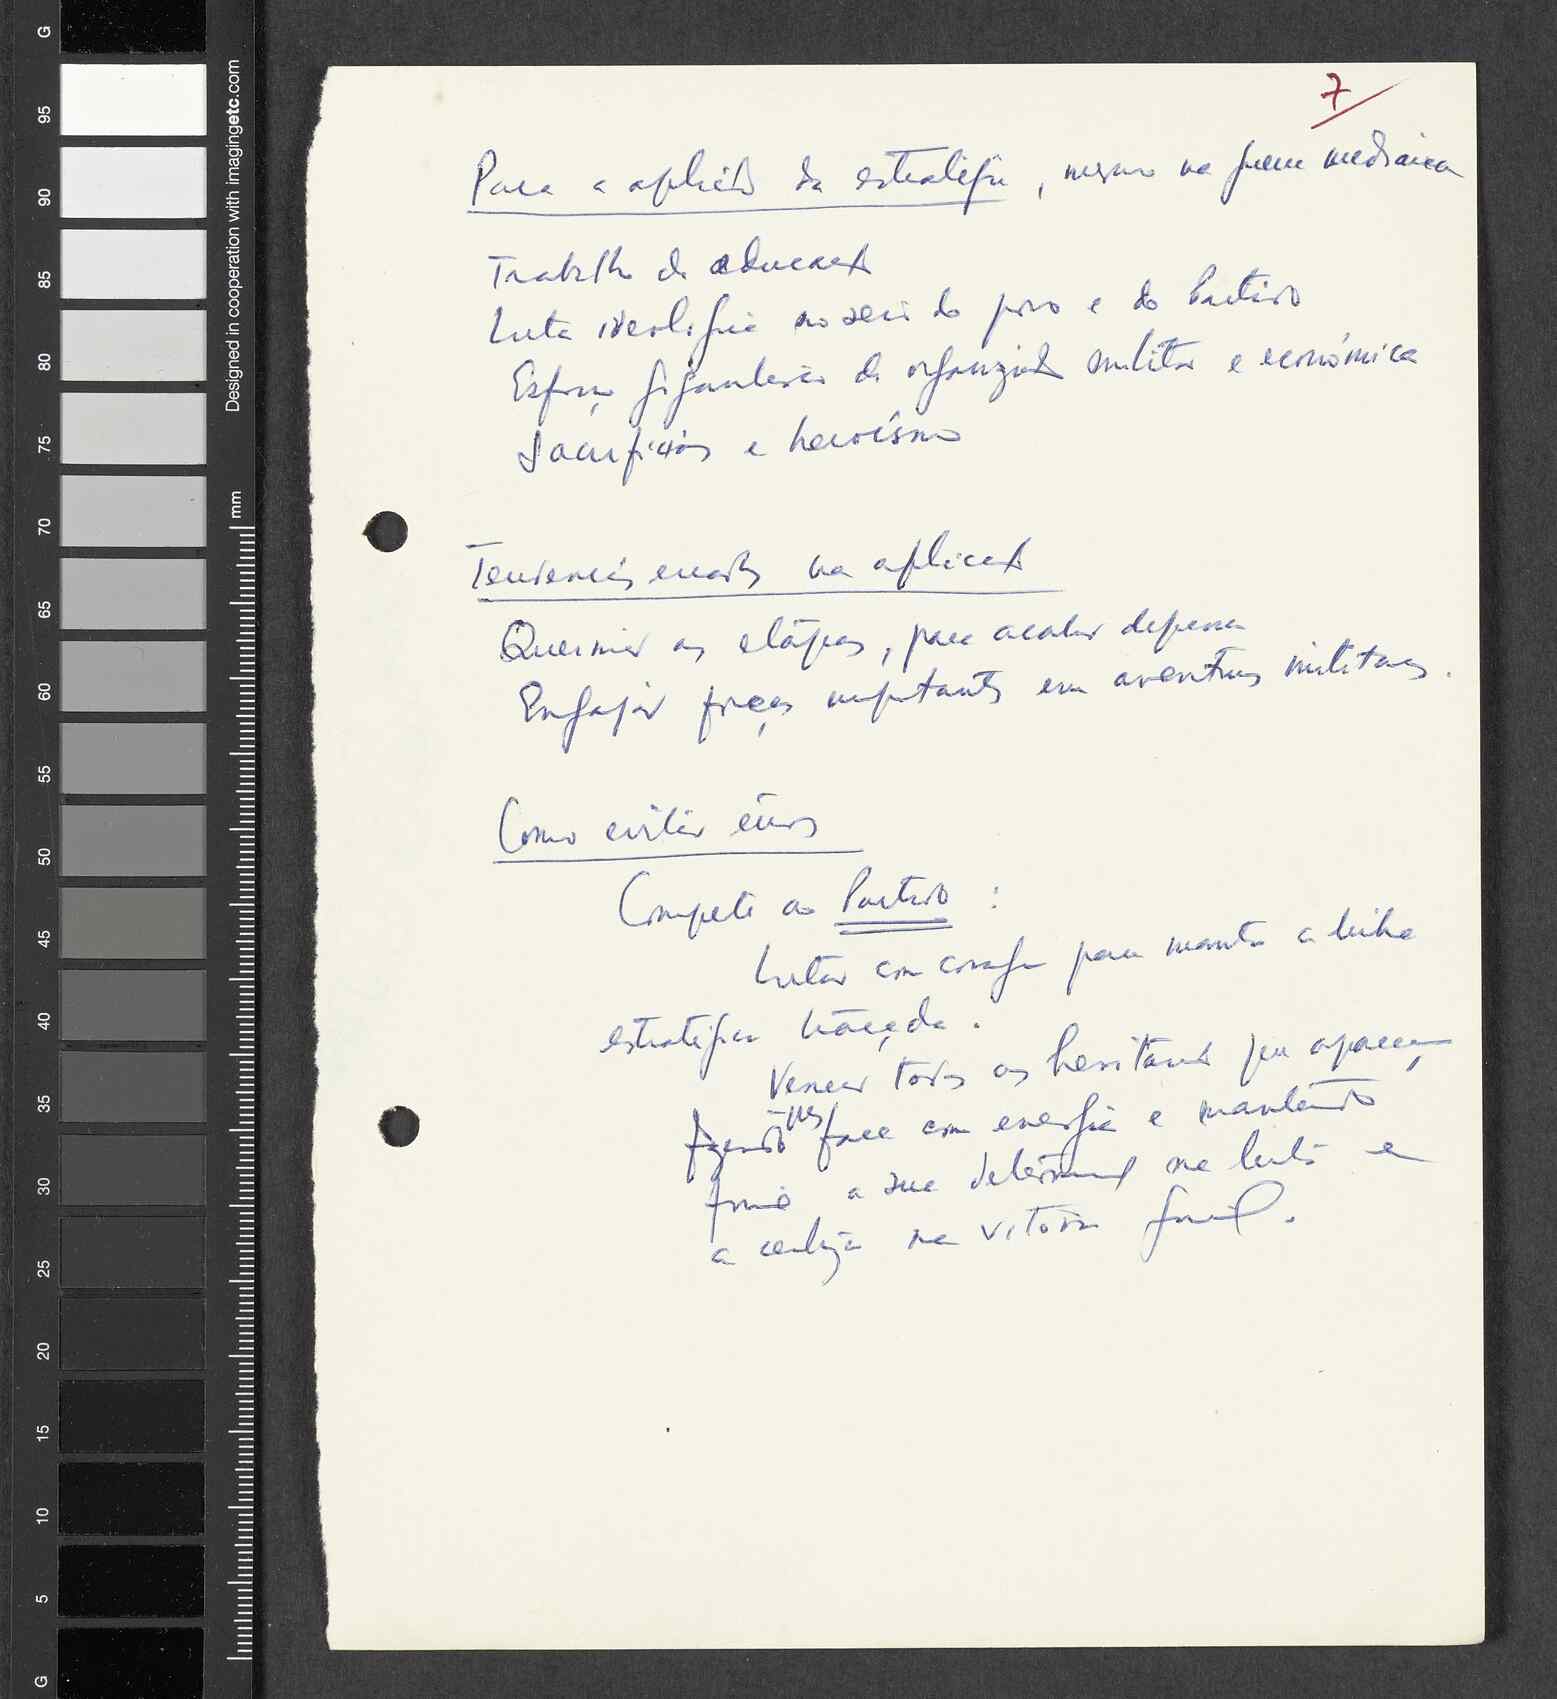 7
Para a aplicação da estratégia, mesmo na guerra mecânica
Trabalho de educação
Luta ideológica no seio do povo e do Partido
Esforço gigantesco de organização militar e económica
Sacrifícios e heroísmo
Tendencias erradas na aplicação
Queimar as etapas, para acabar depressa
Engajar forças importantes em aventuras militares.
Como evitar erros
Compete ao Partido :
Lutar com coragem para manter a linha
estratégica traçada.
Vencer todas as hesitações que apareçam
fazendo-lhes face com energia e mantendo
firme a sua determinação na luta e
a certeza na vitória final.
G
95
90
85
80
75
70
65
60
55
50
45
40
35
30
25
20
15
10
5
G
Designed in cooperation with imagingetc.com
mm